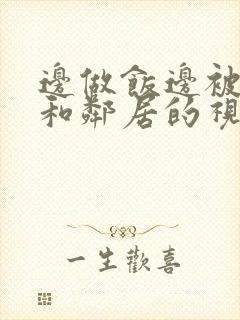 邊做飯邊被
和鄰居的視
一生歡喜